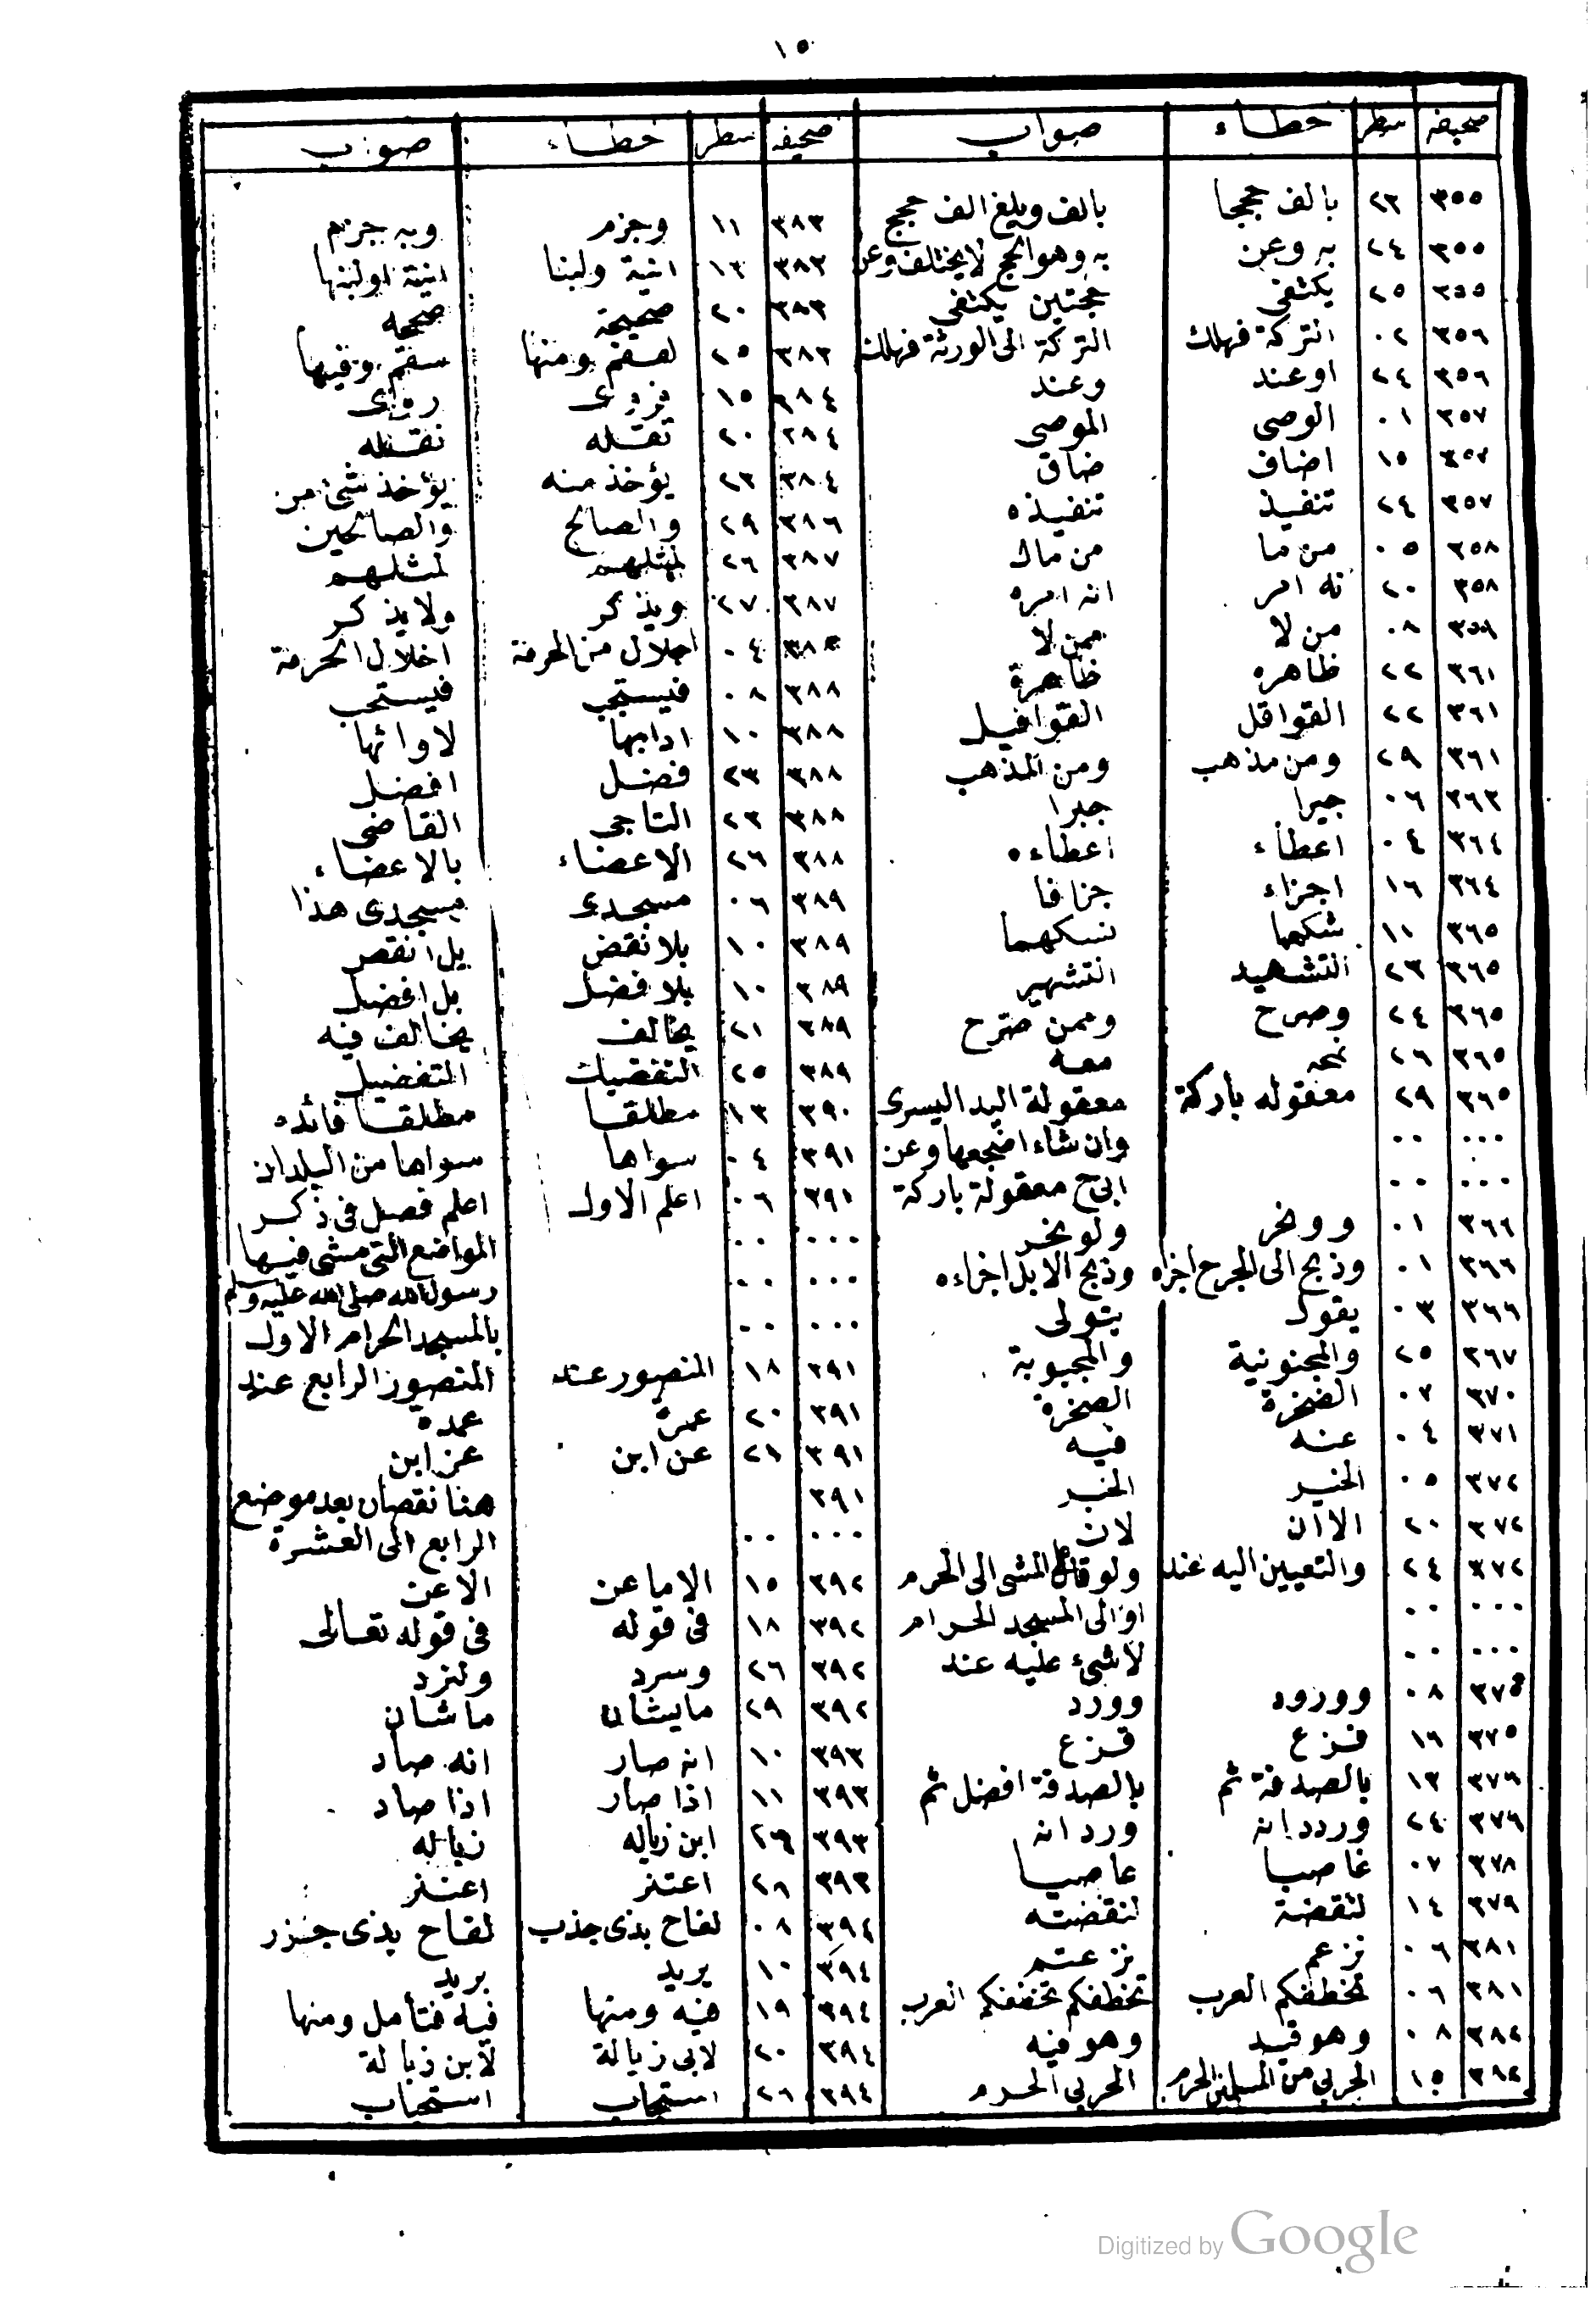 ١٥
صحيفه سطر خطاء صواب
٣٥٥ ٢٣ بالف حججا بالف ويلغ الف حجج
٣٥٥ ٢٤ به وعن به وهو الحج لا يختلف وعن
٣٥٥ ٢٥ يكتفى حجتين يكتفى
٣٥٦ ٠٢ التركة فهلك التركة الى الورثة فهلك
٣٥٦ ٢٤ اوعند وعند
٣٥٧ ٠١ الوصى الموصى
٣٥٧ ١٥ اضاف ضاق
٣٥٧ ٢٤ تنفيذ تنفيذه
٣٥٨ ٠٥ من ما من مال
٣٥٨ ٢٠ نه امر انه امره
٣٥٩ ٠٨ من لا ممن لا
٣٦١ ٢٢ ظاهره ظاهرة
٣٦١ ٢٢ القواقل القوافيل
٣٦١ ٢٩ ومن مذهب ومن المذهب
٣٦٣ ٠٦ جيرا جبرا
٣٦٤ ٠٤ اعطاء اعطاءه
٣٦٤ ١٦ اجزاء جزافا
٣٦٥ ١١ شكها نسكهما
٣٦٥ ٢٣ التشهيد التشهير
٣٦٥ ٢٤ وصرح وممن صرح
٣٦٥ ٢٦ معه
٣٦٥ ٢٩ معقوله باركة معقولة اليد اليسرى
٠٠٠ ٠٠ وان شاء اضجعها وعن
٠٠٠ ٠٠ ابى ح معقولة باركة
٣٦٦ ٠١ وونحر ولو نحر
٣٦٦ ٠١ وذبح الى الجرح اجزاه وذبح الابل اجزاءه
٣٦٦ ٠٣ يقول يتولى
٣٦٧ ٢٥ والمجنونية والمجبوبة
٣٧٠ ٠٢ الضخرة الصخرة
٣٧١ ٠٤ عنه فيه
٣٧٢ ٠٥ الخير الخبر
٣٧٢ ٢٠ الاان لان
٣٧٢ ٢٤ والتعيين اليه عند ولو قال المشى الى الحرم
٠٠٠ ٠٠ او الى المسجد الحرام
٠٠٠ ٠٠ لاشئ عليه عند
٣٧٥ ٠٨ وورود وورد
٣٧٥ ١٦ فزع قزع
٣٧٦ ١٣ بالصدقة ثم بالصدقة افضل ثم
٣٧٦ ٢٤ ورددانه وردانه
٣٧٨ ٠٧ غاصبا عاصيا
٣٧٩ ١٤ لنقضة لنقضته
٣٨١ ٠٦ نزعم نزعتم
٣٨١ ٠٦ تخطفكم العرب تخطفكم تخففكم العرب
٣٨٢ ٠٨ وهو قيد وهو فيه
٣٨٢ ١٥ الحربى من المسلمين الحرم الحربى الحرم
صحيفه سطر خطاء صواب
٣٨٣ ١١ وجزم وبه جزم
٣٨٣ ١٣ انية ولبنا انية اولبنها
٣٨٣ ٢٠ صحيحة صححه
٣٨٣ ٢٥ لعسقم ومنها سقم وفيها
٣٨٤ ١٥
٣٨٤ ٢٠ تقتله نقله
٣٨٤ ٢٣ يؤخذ منه يؤخذ شئ من
٣٨٦ ٢٩ والصالح والصالحين
٣٨٧ ٢٦ لمثلهم لمثلهم
٣٨٧ ٢٧ ويذكر ولا يذكر
٣٨٨ ٠٤ اجلال من الحرمة اخلال الحرمة
٣٨٨ ٠٨ فيستجب فيستحب
٣٨٨ ١٠ ادابها لاوائها
٣٨٨ ٢٣ فضل افضل
٣٨٨ ٢٣ التاجى القاضى
٣٨٨ ٢٦ الاعضاء بالاعضاء
٣٨٩ ٠٦ مسجدى مسجدى هذا
٣٨٩ ١٠ بلا نقض بل انقص
٣٨٩ ١٠ بلا فضل بل افضل
٣٨٩ ٢١ يخالف يخالف فيه
٣٨٩ ٢٥ التفضيلت التفضيل
٣٩٠ ١٣ مطلقا مطلقا فائده
٣٩١ ٠٤ سواها سواها من البلدان
٣٩١ ٠٦ اعلم الاول اعلم فصل فى ذكر
٠٠٠ ٠٠ المواضع التى مشى فيها
٠٠٠ ٠٠ رسول الله صلى الله عليه وسلم
٠٠٠ ٠٠ بالمسجد الحرام الاول
٣٩١ ١٨ المنصور عند المنصور الرابع عند
٣٩١ ٢٠ عمرة عمده
٣٩١ ٢١ عن ابن عز ابن
٣٩١ هنا نقصان بعد موضع
٠٠٠ ٠٠ الرابع الى العشرة
٣٩٢ ١٥ الاما عن الاعن
٣٩٢ ١٨ فى قوله فى قوله تعالى
٣٩٢ ٢٦ وسرد ولنرد
٣٩٢ ٢٩ مايشان ماشان
٣٩٣ ١٠ انه صار انه صاد
٣٩٣ ١١ اذا صار اذا صاد
٣٩٣ ٢٦ ابن زياله زباله
٣٩٣ ٢٨ اعتنر اعنز
٣٩٤ ٠٨ لفاح بذى جذب لقاح بذى جدر
٣٩٤ ١٠ يريد بريد
٣٩٤ ١٩ فيه ومنها فيه فتأمل ومنها
٣٩٤ ٢٠ لابى زيالة لابن زبالة
٣٩٤ ٢٦ استجاب استحباب
Digitized by Google